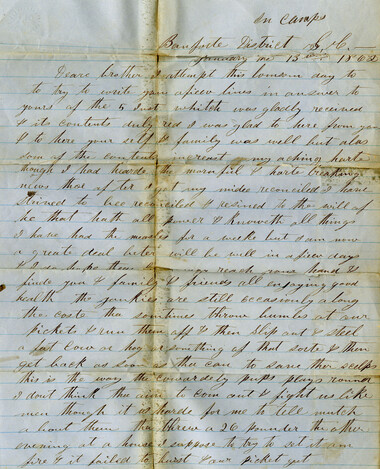 In Camps
District S, C,
January the 15 1862
Deare brother I attempt this lonsum day to
to try to write you a fiew lines in answer to
yours of the 5 Inst which was gladly received
& its contents duly red I was glad to here from you
& to here your self & family was well but alas
som of the contents in my aching harte
though I had hearde the mornful & harte breaking
news that after I got my mide reconciled I have
to bee reconciled & resined to the will of
he that hath all power & knowith all things
I have had the measles for a weeks but I am now
a great deal beter will be well in a fiew days
& I so hope these reach your hand &
finde you & family & friends all enjoying good
health the yankies are still occasionly along
the coste tha somtimes throw bumbs at our
pickets & run them off & then slip out & steel
a fat Cow or hog or somthing of that sorte & then
get back as soon as tha can to save ther scelps
this is the way the cowardely pups plays round
I dont think tha com out & fight us like
men though it is harde for me to tell mutch
a bout them tha threw a 26 pounder the other
evening at a house I suppose to try to set it on
fire & it failed to burst & our picket got